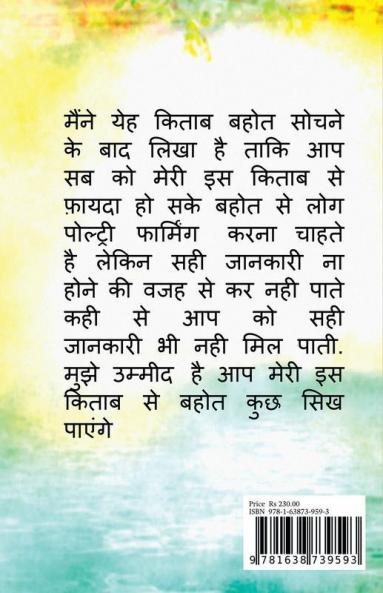 मैंने येह किताब बहोत सोचने
के बाद लिखा है ताकि आप
सब को मेरी इस किताब से
फ़ायदा हो सके बहोत से लोग
पोल्ट्री फार्मिंग करना चाहते
है लेकिन सही जानकारी ना
होने की वजह से कर नही पाते
कही से आप को सही
जानकारी भी नही मिल पाती.
मुझे उम्मीद है आप मेरी इस
किताब से बहोत कुछ सिख
पाएंगे
Price Rs 230.00
ISBN 978-1-63873-959-3
9 781638 739593